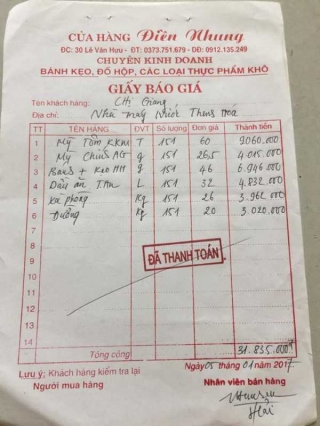 CỬA HÀNG Điền Nhung
ĐC: 30 Lê Văn Hưu - ĐT: 0373.751.679 - DĐ: 0912.135.249
CHUYÊN KINH DOANH
BÁNH KẸO, ĐỒ HỘP, CÁC LOẠI THỰC PHẨM KHÔ
GIẤY BÁO GIÁ
Tên khách hàng: Chị Giang
Địa chỉ: Nhà Máy Nước Thanh Hoá
TT TÊN HÀNG ĐVT Số lượng Đơn giá Thành tiền
1 Mỳ Tôm T 151 60 9060.000
2 Mỳ Chính g 151 26,5 4.015.000
3 Bánh + Kẹo g 151 46 6.946.000
4 Dầu ăn L 151 32 4.832.000
5 Xà phòng Kg 151 26 3.962.000
6 Đường Kg 151 20 3.020.000
7
8
9
10
11
12
13
14
ĐÃ THANH TOÁN
Tổng cộng 31.835.000
Lưu ý: Khách hàng kiểm tra lại
Ngày 05 tháng 01 / 2017
Người mua hàng Nhân viên bán hàng